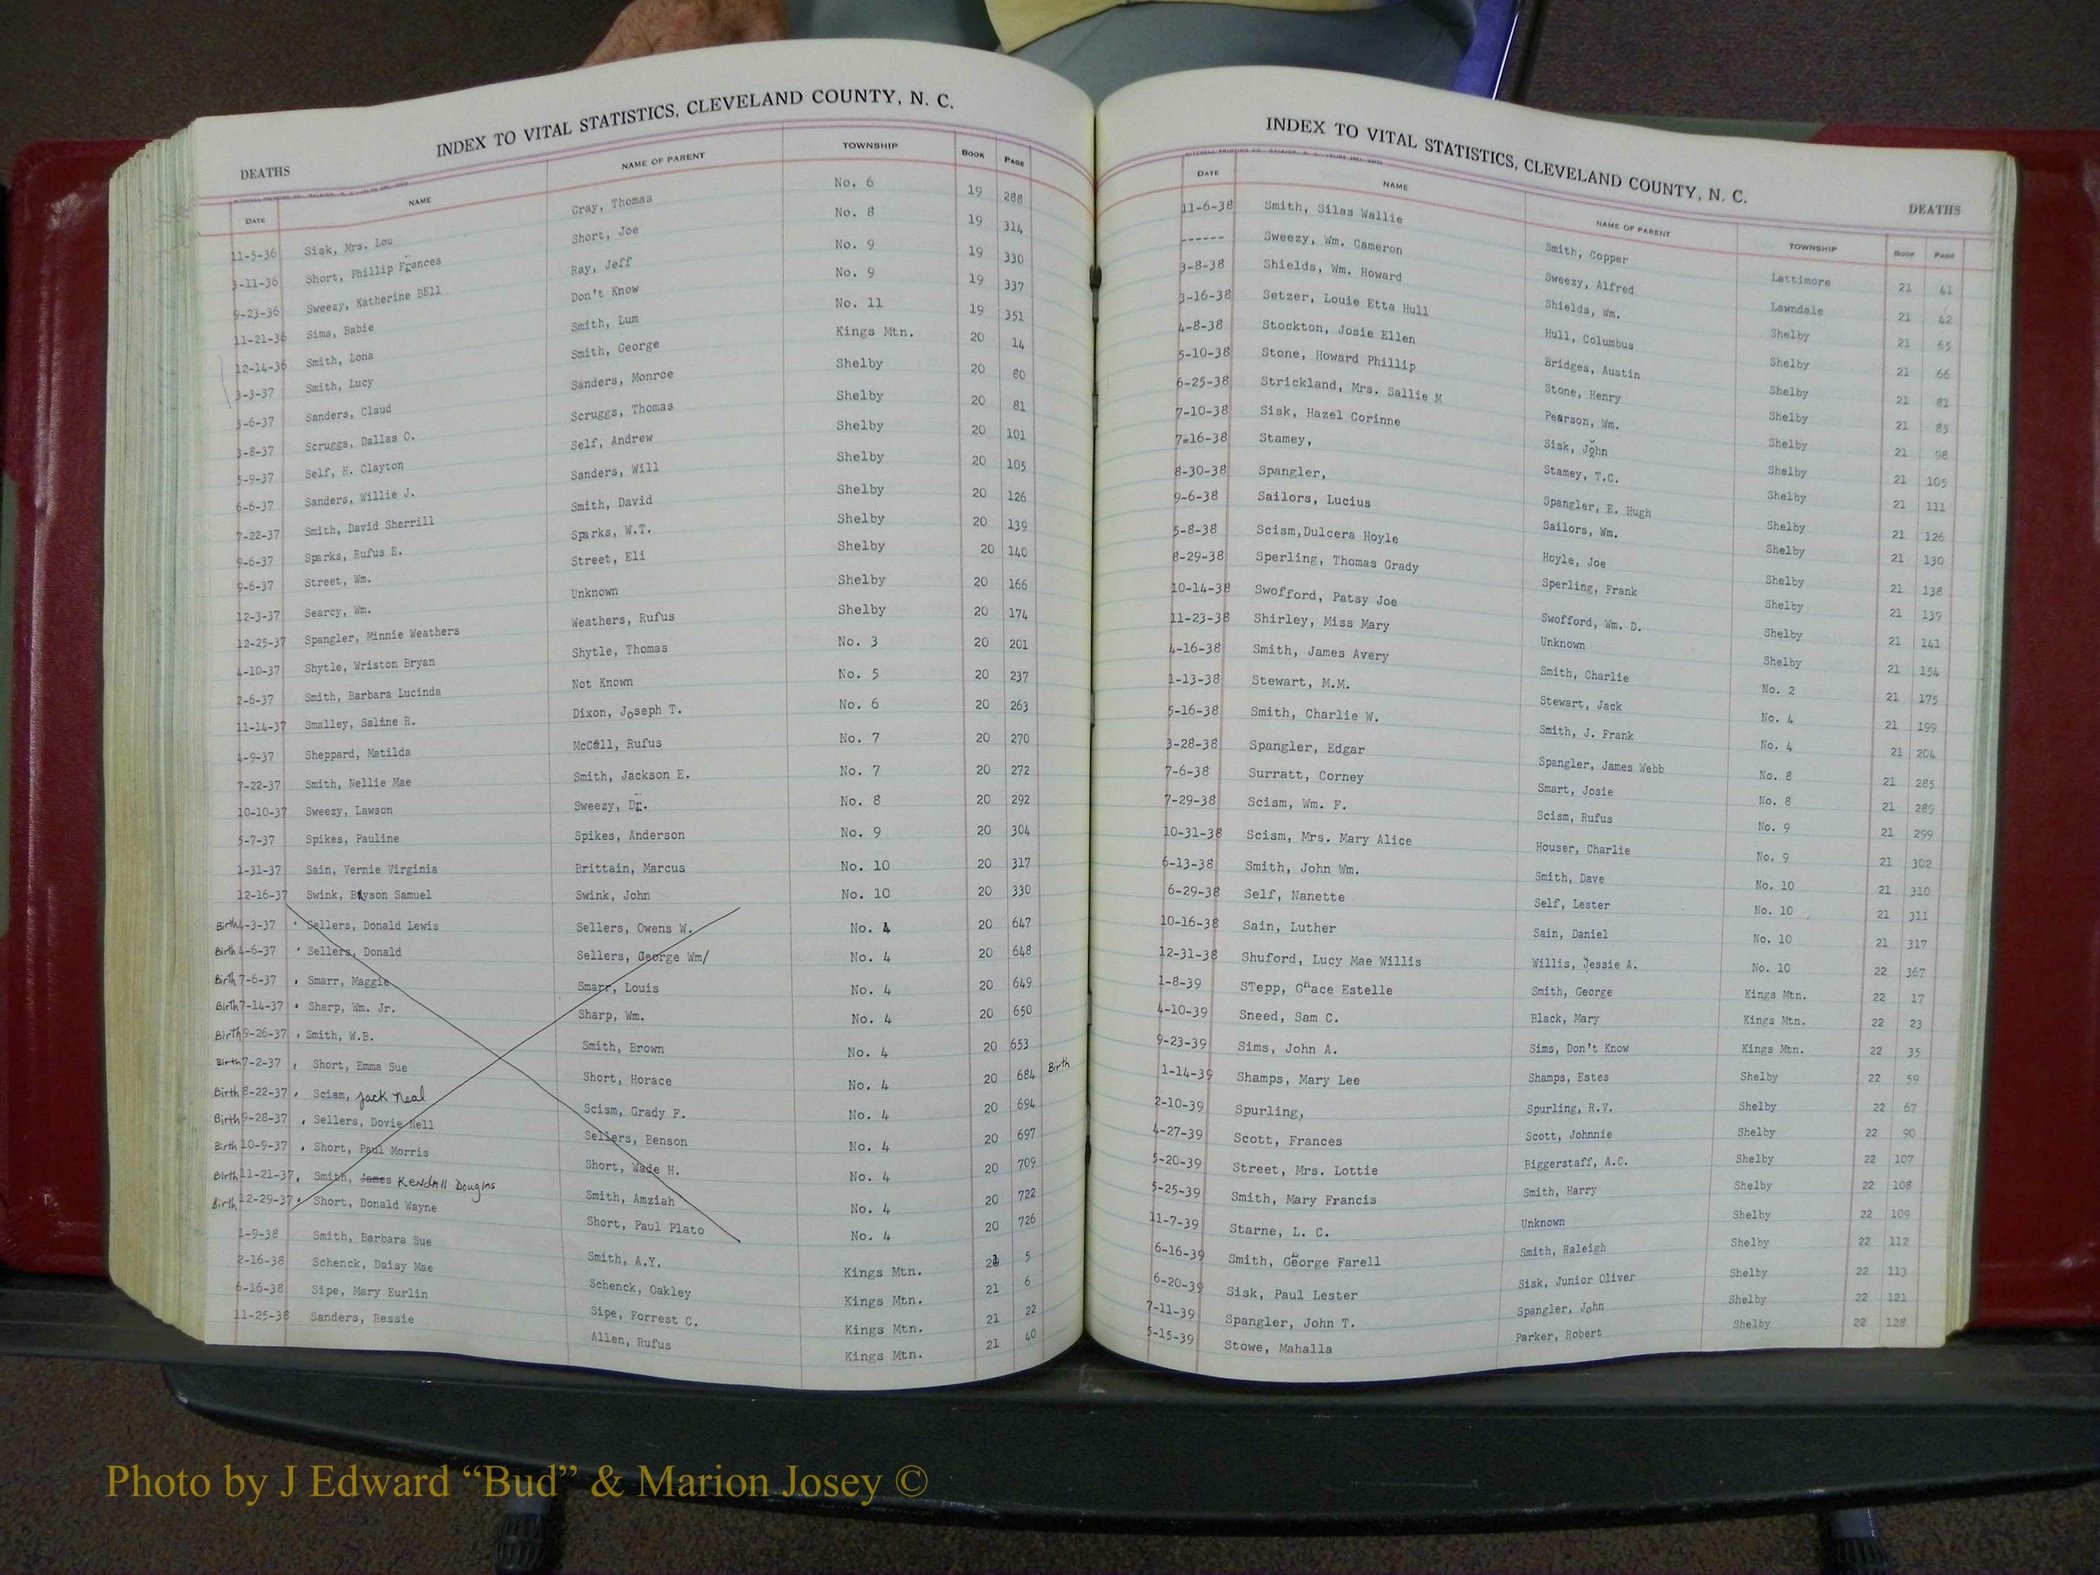 INDEX TO VITAL STATISTICS, CLEVELAND COUNTY, N. C.
DEATHS
DATE NAME NAME OF PARENT TOWNSHIP BOOK PAGE
11-5-36 Sisk, Mrs. Lou Gray, Thomas No. 6 19 288
3-11-36 Short, Phillip Frances Short, Joe No. 8 19 314
9-23-36 Sweezy, Katherine BEll Ray, Jeff No. 9 19 330
11-21-36 Sims, Babie Don't Know No. 9 19 337
12-14-36 Smith, Lona Smith, Lum No. 11 19 351
3-3-37 Smith, Lucy Smith, George Kings Mtn. 20 14
3-6-37 Sanders, Claud Sanders, Monroe Shelby 20 80
3-8-37 Scruggs, Dallas O. Scruggs, Thomas Shelby 20 81
5-9-37 Self, H. Clayton Self, Andrew Shelby 20 101
6-6-37 Sanders, Willie J. Sanders, Will Shelby 20 105
7-22-37 Smith, David Sherrill Smith, David Shelby 20 126
9-6-37 Sparks, Rufus E. Sparks, W.T. Shelby 20 139
9-6-37 Street, Wm. Street, Eli Shelby 20 140
12-3-37 Searcy, Wm. Unknown Shelby 20 166
12-25-37 Spangler, Minnie Weathers Weathers, Rufus Shelby 20 174
4-10-37 Shytle, Wriston Bryan Shytle, Thomas No. 3 20 201
2-6-37 Smith, Barbara Lucinda Not Known No. 5 20 237
11-14-37 Smalley, Saline R. Dixon, Joseph T. No. 6 20 263
4-9-37 Sheppard, Matilda McCall, Rufus No. 7 20 270
7-22-37 Smith, Nellie Mae Smith, Jackson E. No. 7 20 272
10-10-37 Sweezy, Lawson Sweezy, Dr. No. 8 20 292
5-7-37 Spikes, Pauline Spikes, Anderson No. 9 20 304
1-31-37 Sain, Vernie Virginia Brittain, Marcus No. 10 20 317
12-16-37 Swink, Bryson Samuel Swink, John No. 10 20 330
Birth 4-3-37 Sellers, Donald Lewis Sellers, Owens W. No. 4 20 647
Birth 4-6-37 Sellers, Donald Sellers, George Wm/ No. 4 20 648
Birth 7-6-37 Smarr, Maggie Smarr, Louis No. 4 20 649
Birth 7-14-37 Sharp, Wm. Jr. Sharp, Wm. No. 4 20 650
Birth 9-26-37 Smith, W.B. Smith, Brown No. 4 20 653
Birth 7-2-37 Short, Emma Sue Short, Horace No. 4 20 684 Birth
Birth 8-22-37 Scism, Jack Neal Scism, Grady F. No. 4 20 694
Birth 9-28-37 Sellers, Dovie Nell Sellers, Benson No. 4 20 697
Birth 10-9-37 Short, Paul Morris Short, Wade H. No. 4 20 709
Birth 11-21-37 Smith, James Kendall Douglas Smith, Amziah No. 4 20 722
Birth 12-29-37 Short, Donald Wayne Short, Paul Plato No. 4 20 726
1-9-38 Smith, Barbara Sue Smith, A.Y. Kings Mtn. 21 5
2-16-38 Schenck, Daisy Mae Schenck, Oakley Kings Mtn. 21 6
6-16-38 Sipe, Mary Eurlin Sipe, Forrest C. Kings Mtn. 21 22
11-25-38 Sanders, Bessie Allen, Rufus Kings Mtn. 21 40
INDEX TO VITAL STATISTICS, CLEVELAND COUNTY, N. C.
DEATHS
DATE NAME NAME OF PARENT TOWNSHIP BOOK PAGE
11-6-38 Smith, Silas Wallie Smith, Copper Lattimore 21 41
------ Sweezy, Wm. Cameron Sweezy, Alfred Lawndale 21 42
3-8-38 Shields, Wm. Howard Shields, Wm. Shelby 21 65
3-16-38 Setzer, Louie Etta Hull Hull, Columbus Shelby 21 66
4-8-38 Stockton, Josie Ellen Bridges, Austin Shelby 21 81
5-10-38 Stone, Howard Phillip Stone, Henry Shelby 21 85
6-25-38 Strickland, Mrs. Sallie M Pearson, Wm. Shelby 21 98
7-10-38 Sisk, Hazel Corinne Sisk, John Shelby 21 105
7-16-38 Stamey, Stamey, T.C. Shelby 21 111
8-30-38 Spangler, Spangler, E. Hugh Shelby 21 126
9-6-38 Sailors, Lucius Sailors, Wm. Shelby 21 130
5-8-38 Scism,Dulcera Hoyle Hoyle, Joe Shelby 21 138
8-29-38 Sperling, Thomas Grady Sperling, Frank Shelby 21 139
10-14-38 Swofford, Patsy Joe Swofford, Wm. D. Shelby 21 141
11-23-38 Shirley, Miss Mary Unknown Shelby 21 154
4-16-38 Smith, James Avery Smith, Charlie No. 2 21 175
1-13-38 Stewart, M.M. Stewart, Jack No. 4 21 199
5-16-38 Smith, Charlie W. Smith, J. Frank No. 4 21 204
3-28-38 Spangler, Edgar Spangler, James Webb No. 8 21 285
7-6-38 Surratt, Corney Smart, Josie No. 8 21 289
7-29-38 Scism, Wm. F. Scism, Rufus No. 9 21 299
10-31-38 Scism, Mrs. Mary Alice Houser, Charlie No. 9 21 302
6-13-38 Smith, John Wm. Smith, Dave No. 10 21 310
6-29-38 Self, Nanette Self, Lester No. 10 21 311
10-16-38 Sain, Luther Sain, Daniel No. 10 21 317
12-31-38 Shuford, Lucy Mae Willis Willis, Jessie A. No. 10 22 367
1-8-39 STepp, Grace Estelle Smith, George Kings Mtn. 22 17
4-10-39 Sneed, Sam C. Black, Mary Kings Mtn. 22 23
9-23-39 Sims, John A. Sims, Don't Know Kings Mtn. 22 35
1-14-39 Shamps, Mary Lee Shamps, Estes Shelby 22 59
2-10-39 Spurling, Spurling, R.V. Shelby 22 67
4-27-39 Scott, Frances Scott, Johnnie Shelby 22 90
5-20-39 Street, Mrs. Lottie Biggerstaff, A.C. Shelby 22 107
5-25-39 Smith, Mary Francis Smith, Harry Shelby 22 108
11-7-39 Starne, L. C. Unknown Shelby 22 109
6-16-39 Smith, George Farell Smith, Raleigh Shelby 22 112
6-20-39 Sisk, Paul Lester Sisk, Junior Oliver Shelby 22 113
7-11-39 Spangler, John T. Spangler, John Shelby 22 121
5-15-39 Stowe, Mahalla Parker, Robert Shelby 22 128
Photo by J Edward “Bud” & Marion Josey ©